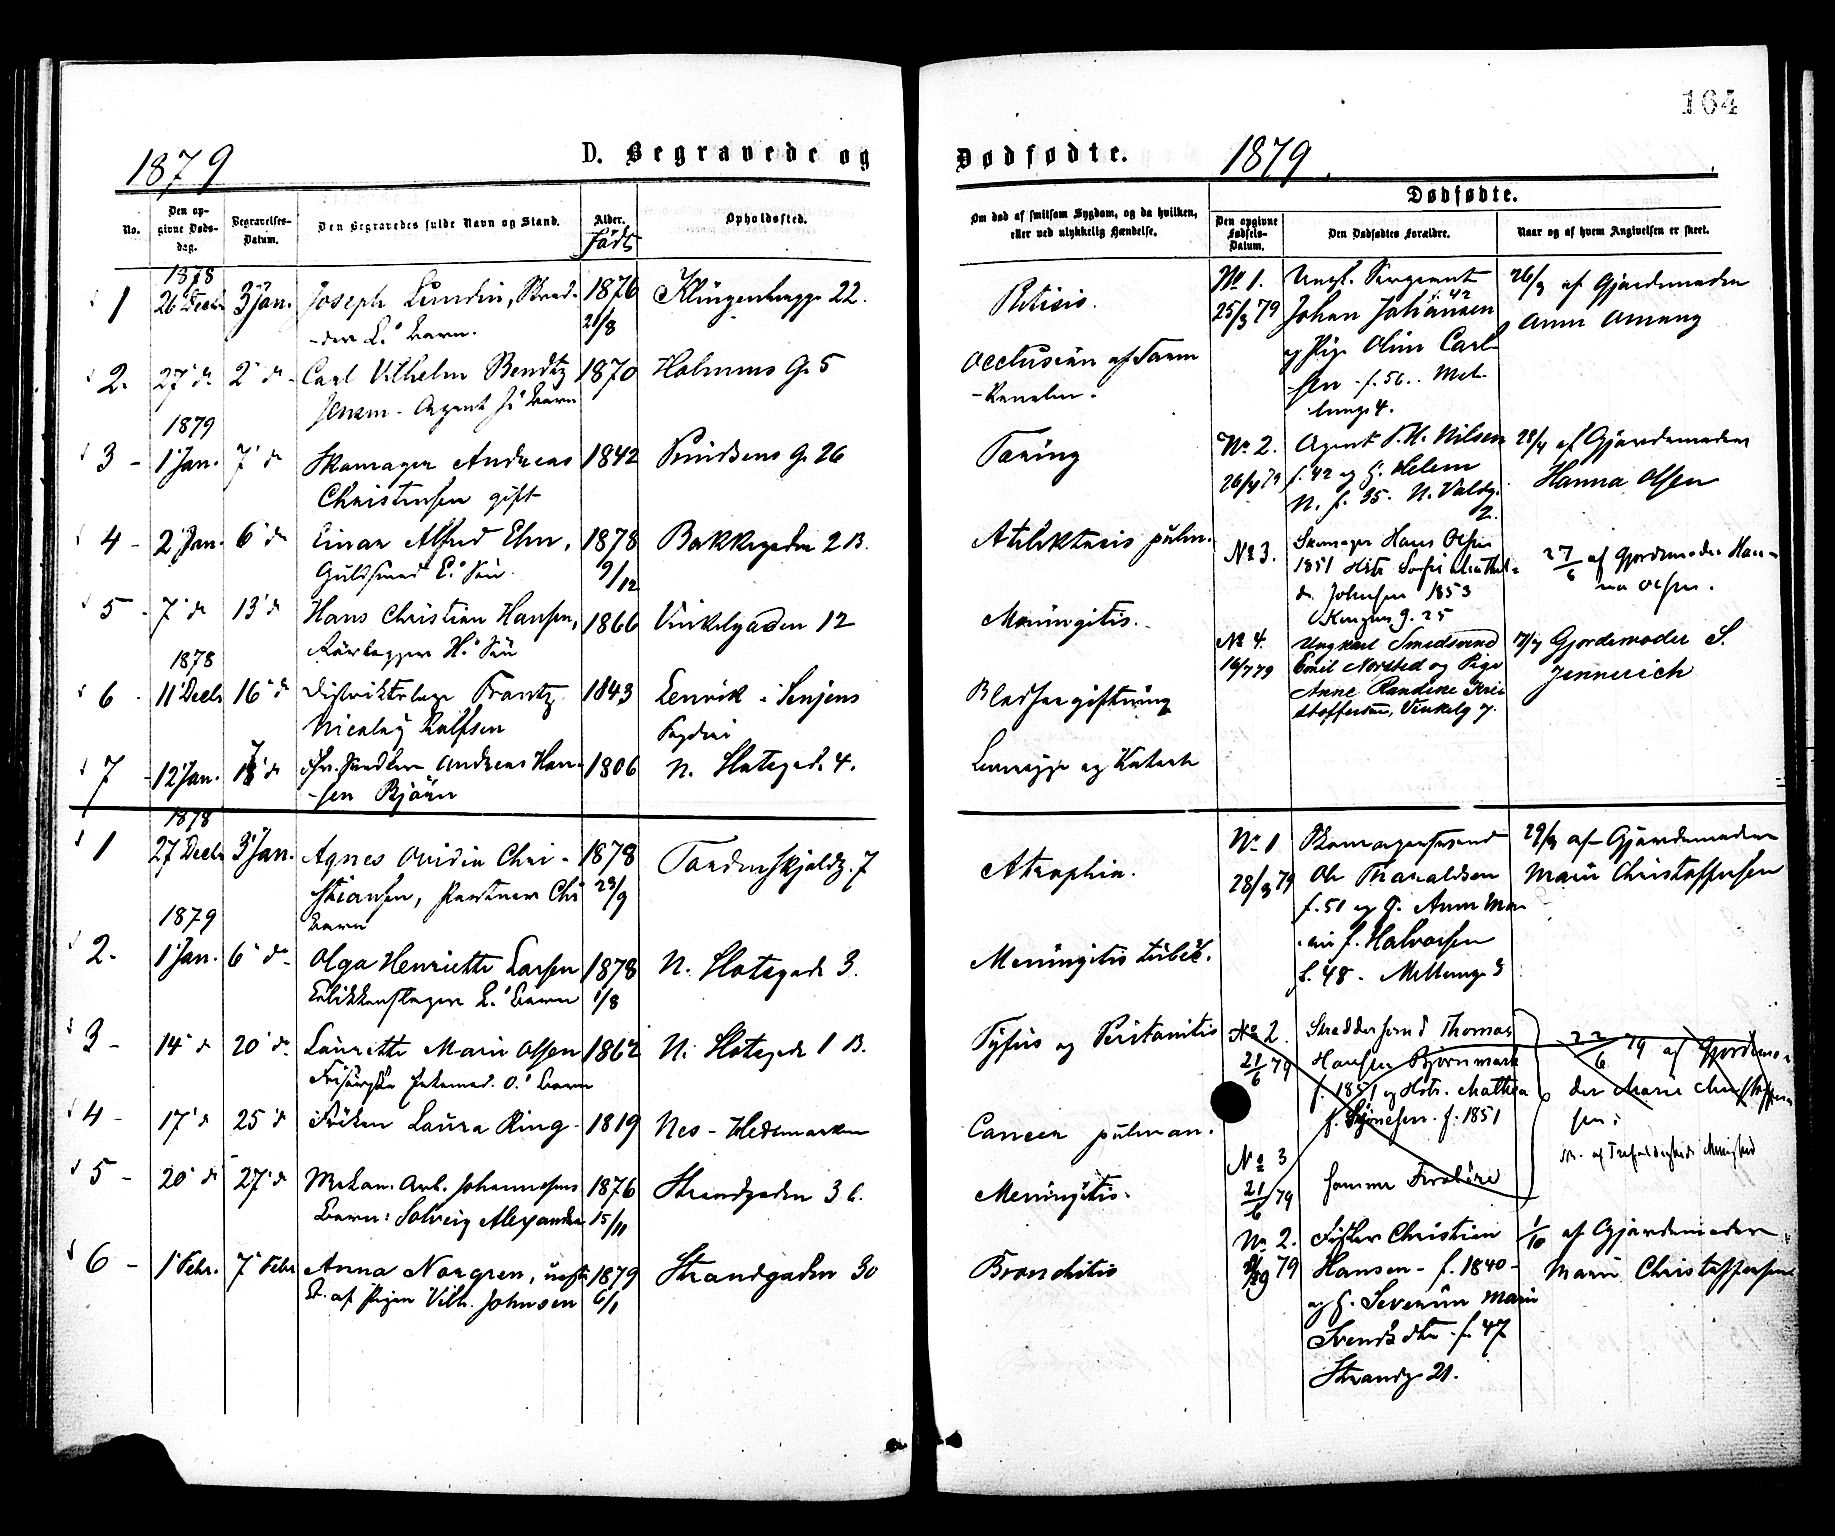 164
1879
D. Begravede og
Dødfødte.
1879.
No.
Den opgivne Dødsdag.
Begravelses-Datum.
Den Begravedes fulde Navn og Stand.
Alder.
Født
Opholdssted.
Om død af smitsom Sygdom, og da hvilken,
eller ved ulykkelig Hændelse.
Dødfødte.
Den opgivne Fødsels-Datum.
Den Dødfødtes Forældre.
Naar og af hvem Angivelsen er skeet.
1878
1 26' Decbr 3' Jan. Joseph Lundin, 1876 Klingenbergg. 22.
21/8
2. 27' d 2' d Carl Vilhelm Bendtz 1870 Holmens G. 5
Jensen - Agent J.' Barn
1879
3 - 1' Jan. 7' d Skomager Andreas 1842 26
Christensen gift
4 - 2' Jan. 6' d Einar Alfred Elm, 1878 Bakkegaden 2 B.
Guldsmed E.' Søn. 9/12
5 - 7' d 13' d Hans Christian Hansen, 1866 Vinkelgaden 12
Rørlægger H.' Søn
1878
6 - 11' Decbr 16' d Distriktslæge Frantz 1843 Lenvik i Senjens
Nicolay Rolfsen Fogderi
7 - 12' Jan. d Andreas Han- 1806 N. Slotsgad. 4.
-sen Bjørn
1878
1 27' Decbr 3' Jan. Agnes Ovidia Chri- 1878 Tordenskjoldg. 7
stiansen, Chr 23/9
Barn
1879
2. 1' Jan. 6' d Olga Henriette Larsen 1878 N. Slotsgade 3.
L.' Barn 1/8
3 - 14' d 20' d. Laurette Marie Olsen 1862 N. Slotsgade 1 B.
O.' Barn
4 - 17' d 25' d Frøken Laura Ring 1819 Nes - Hedemarken
5 - 20' d 27' d Mekan. Arb. Johannesens 1876 Strandgaden 36.
Barn: Solveig Alexandra 15/11
6 - 1' Febr. 7' Febr Anna Norgren, 1879 Strandgaden 30
B. af Pigen Vilh. Johnsen 6/1
Occlusion af Tarm
-Kanalen.
Tæring
Atelektasis pulm.
Meningitis.
Blodforgiftning
og Katarh
Atrophia.
Meningitis tuberc.
Tyfus og Peritonitis
Cancer pulman.
Meningitis.
Bronchitis
No 1. Ungk. Sergeant 26/3 af Gjordemoderen
25/3 79 Johan Johansen f. 42 Anne Ameng
og Pige Oline Carl-
sen - f. 56.. Mel-
lumg. 4.
No 2. Agent P. M. Nilsen 28/4 af Gjordemoderen
26/4 79 f. 42 og H. Helene Hanna Olsen
N. f. 35. N.
2.
No 3. Skomager Hans Olsen 27/6 af Gjordemoder Han-
1851 Hstr Sofie Mathil- na Olsen.
de Johnsen 1853
Kongens g. 25
No 4. Ungkarl Smedsvend 17/7 Gjordemoder S.
16/7 79 Emil Norsted og Pige Jennerich
Anne Randine Kri-
stoffersen, Vinkelg 7.
No 1 Skomagersvend 29/3 af Gjordemoderen
28/3 79 Ole Tharaldsen Marie Christoffersen
f. 51 og H. Anne Ma-
rie f. Halvorsen
f. 48 - Mellemg 3
No 2. Skreddersvend Thomas 22/6 79 af Gjordemo-
21/6 79 Hansen Bjørnmark der Marie Christoffer
f. 1851 og Hstr. Mathea sen.
f. 1851
No 3
21/6 79 Samme Forældre
No 2. Fisker Christian 1/10 af Gjordemoderen
79 Hansen - f. 1840 - Marie Christoffersen
og H. Severine Marie
Svendsdtr. f. 47
Strandg 21.